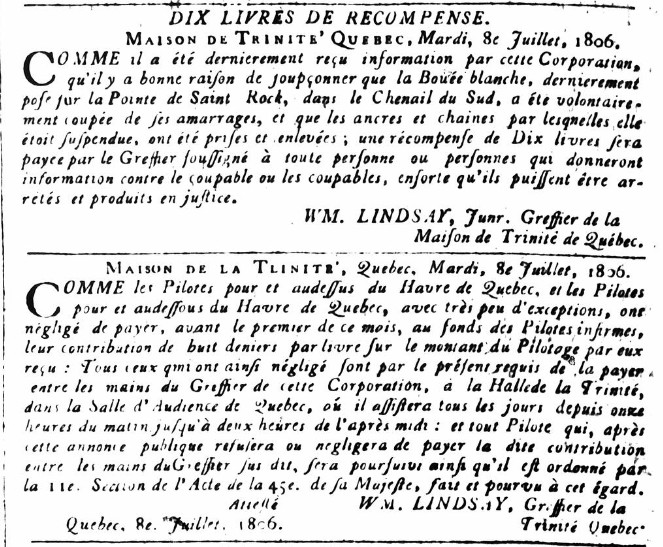 DIX LIVRES DE RECOMPENSE.
MAISON DE TRINITE' QUEBEC, Mardi, 8e Juillet, 1806.
COMME il a été dernierement reçu information par cette Corporation,
qu'il y a bonne raison de soupçonner que la Bouée blanche, dernierement
posé sur la Pointe de Saint Rock, dans le Chenail du Sud, a éte volontaire-
ment coupée de ses amarrages, et que les ancres et chaines par lesquelles elle
étoit suspendue, ont été prises et enlevées; une récompense de Dix livres sera
payee par le Greffier soussigné à toute personne ou personnes qui donneront
information contre le coupable ou les coupables, ensorte qu'ils puissent être ar-
rétés et produits en justice.
WM. LINDSAY, Junr. Greffier de la
Maison de Trinité de Québec.
MAISON DE LA TLINITE', Quebec, Mardi, 8e Juillet, 1806.
COMME les Pilotes pour et audessus du Havre de Quebec, et les Pilotes
pour et audessous du Havre de Quebec, avec très peu d'exceptions, ont
négligé de payer, avant le premier de ce mois, au fonds des Pilotes infirmes,
leur contribution de huit deniers par livre sur le montant du Pilotage par eux
reçu : Tous ceux qmi ont ainsi négligé sont par le présent requis de la payer
entre les mains du Greffier de cette Corporation, à la Hallede la Trinité,
dans la Salle d'Audience de Quebec, où il assistera tous les jours depuis onze
heures du matin jusqu'à deux heures de l'après midi : et tout Pilote qui, après
cette annonce publique refusera ou negligera de payer la dite contribution
entre les mains du Greffier sus dit, sera poursuivi ainsi qu'il est ordonné par
la 11e. Section de l'Acte de la 45e. de sa Majesté, fait et pourvu à cet égard.
Attesté WM. LINDSAY, Greffier de la
Quebec, 8e. Juillet, 1806. Trinité Quebec